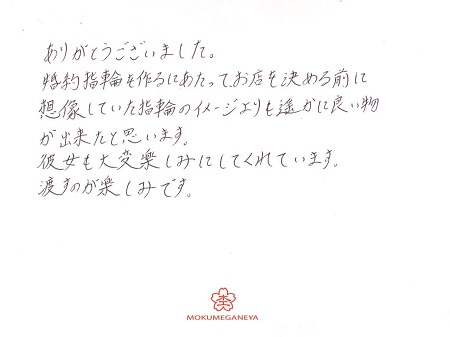 ありがとうございました。
婚約指輪を作るにあたってお店を決める前に
想像していた指輪のイメージよりも遥かに良い物
が出来たと思います。
彼女も大変楽しみにしてくれています。
渡すのが楽しみです。
MOKUMEGANEYA